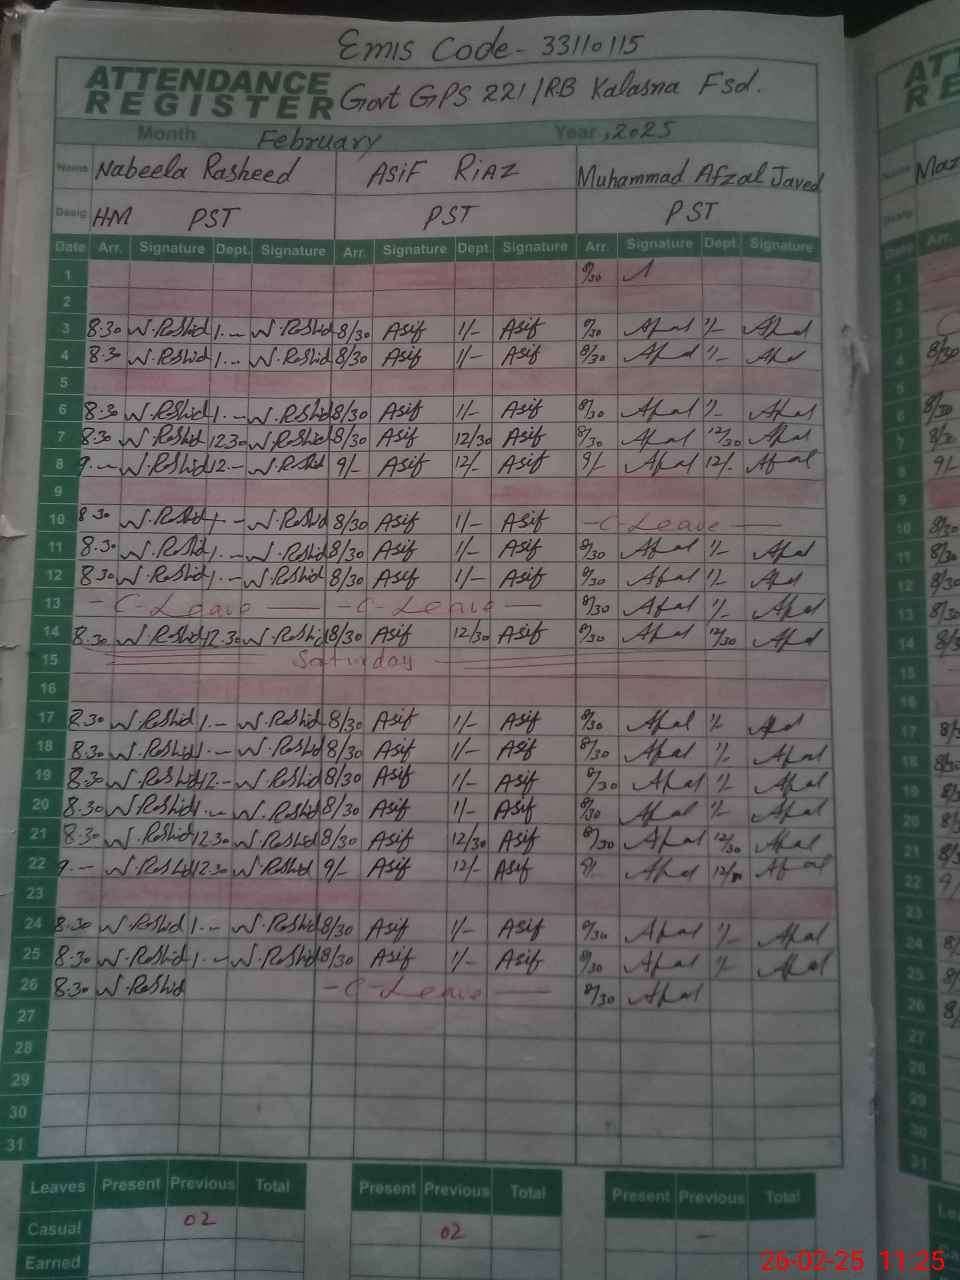 Emis Code - 33110115
ATTENDANCE REGISTER Govt GPS 221/RB Kalasna Fsd.
Month February Year, 2025
Name Nabeela Rasheed ASiF RiAZ Muhammad Afzal Javed
Desig HM PST PST PST
Date Arr. Signature Dept. Signature Arr. Signature Dept. Signature Arr. Signature Dept. Signature
1 8/30
2
3 8.30 N.Rashid 1.-- N.Rashid 8/30 Asif 1/- Asif 8/30 Afzal 1/- Afzal
4 8.30 N.Rashid 1.-- N.Rashid 8/30 Asif 1/- Asif 8/30 Afzal 1/- Afzal
5
6 8.30 N.Rashid 1.-- N.Rashid 8/30 Asif 1/- Asif 8/30 Afzal 1/- Afzal
7 8.30 N.Rashid 12.30 N.Rashid 8/30 Asif 12/30 Asif 8/30 Afzal 12/30 Afzal
8 9.-- N.Rashid 12.- N.Rashid 9/- Asif 12/- Asif 9/- Afzal 12/- Afzal
9
10 8.30 N.Rashid 1.-- N.Rashid 8/30 Asif 1/- Asif - C-Leave -
11 8.30 N.Rashid 1.-- N.Rashid 8/30 Asif 1/- Asif 8/30 Afzal 1/- Afzal
12 8.30 N.Rashid 1.-- N.Rashid 8/30 Asif 1/- Asif 8/30 Afzal 1/- Afzal
13 - C-Leave - - C-Leave - 8/30 Afzal 1/- Afzal
14 8.30 N.Rashid 12.30 N.Rashid 8/30 Asif 12/30 Asif 8/30 Afzal 12/30 Afzal
15 Saturday
16
17 8.30 N.Rashid 1.-- N.Rashid 8/30 Asif 1/- Asif 8/30 Afzal 1/- Afzal
18 8.30 N.Rashid 1.-- N.Rashid 8/30 Asif 1/- Asif 8/30 Afzal 1/- Afzal
19 8.30 N.Rashid 12.- N.Rashid 8/30 Asif 1/- Asif 8/30 Afzal 1/- Afzal
20 8.30 N.Rashid 1.-- N.Rashid 8/30 Asif 1/- Asif 8/30 Afzal 1/- Afzal
21 8.30 N.Rashid 12.30 N.Rashid 8/30 Asif 12/30 Asif 8/30 Afzal 12/30 Afzal
22 9.-- N.Rashid 12.30 N.Rashid 9/- Asif 12/- Asif 9/- Afzal 12/- Afzal
23
24 8.30 N.Rashid 1.-- N.Rashid 8/30 Asif 1/- Asif 8/30 Afzal 1/- Afzal
25 8.30 N.Rashid 1.-- N.Rashid 8/30 Asif 1/- Asif 8/30 Afzal 1/- Afzal
26 8.30 N.Rashid - C-Leave - 8/30 Afzal
27
28
29
30
31
Leaves Present Previous Total Present Previous Total Present Previous Total
Casual 02 02 -
Earned
26-02-25 11:25